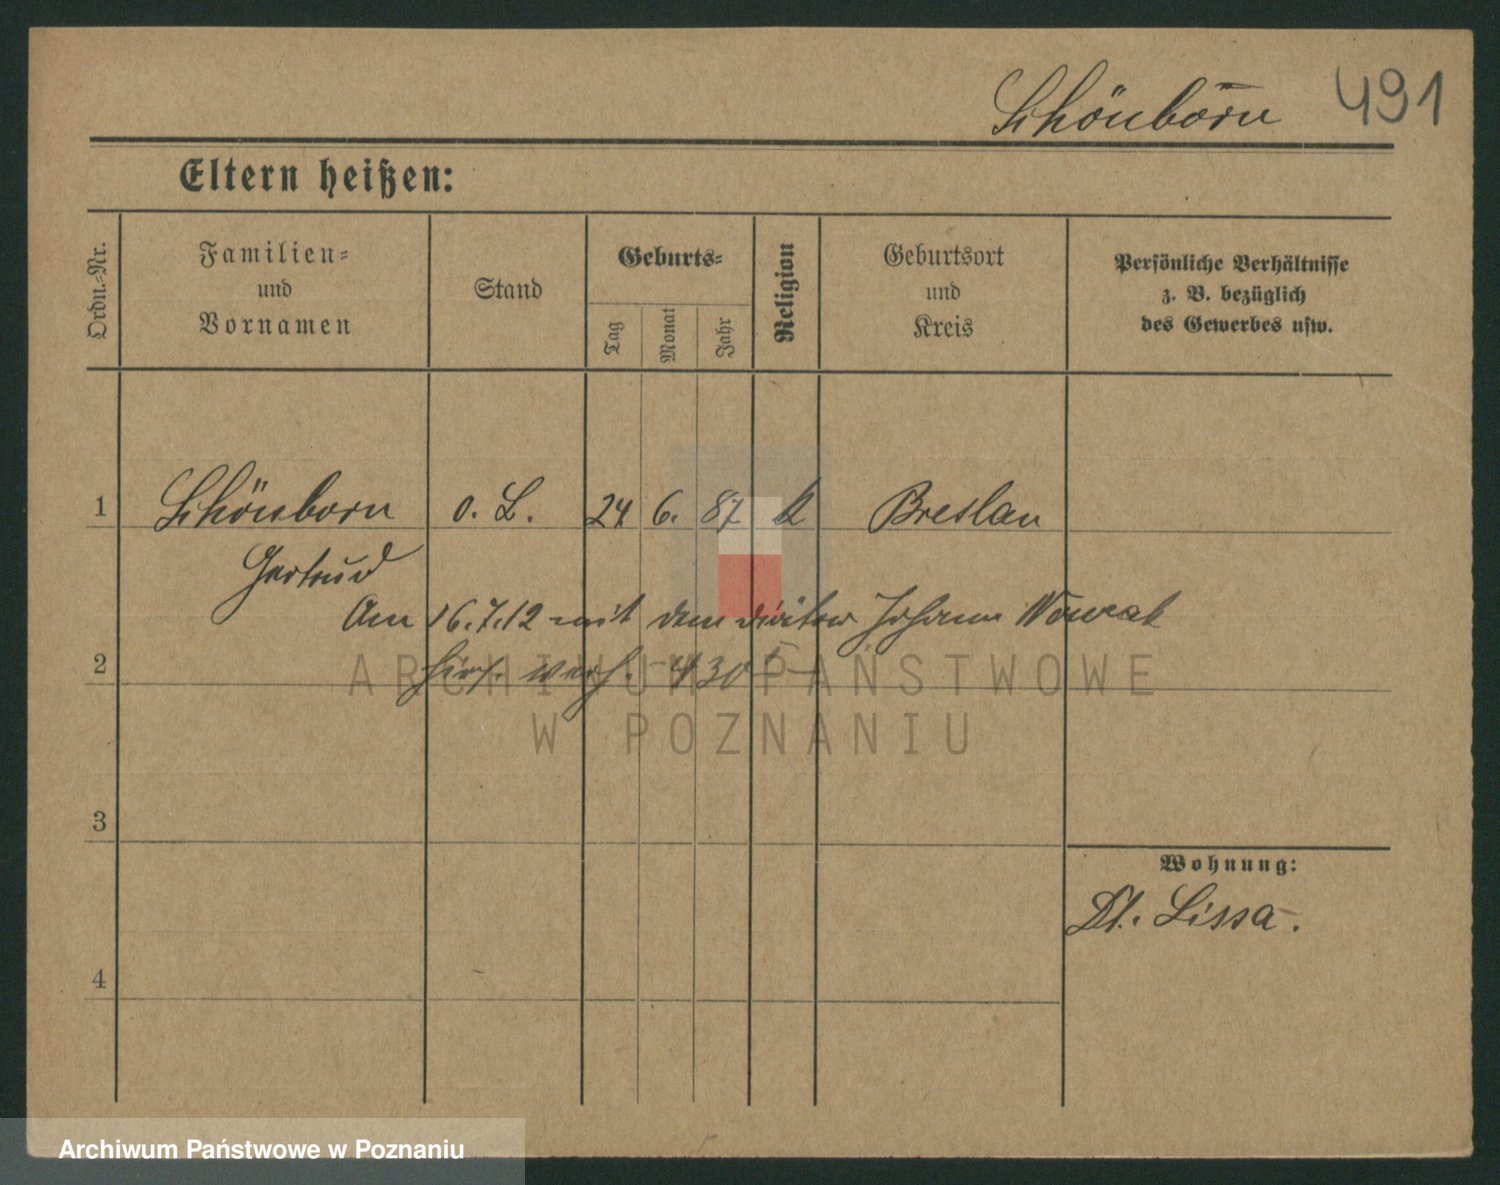 Schönborn 491
Eltern heißen:
Ordn.-Nr.
Familien-
und
Vornamen
Stand
Geburts-
Tag
Monat
Jahr
Religion
Geburtsort
und
Kreis
Persönliche Verhältnisse
z. B. bezüglich
des Gewerbes usw.
1 Schönborn o. L. 24 6. 87 k Breslau
Gertrud
Am 16.7.12 mit dem Johann Nowak
2 hies. verh. 430
3
Wohnung:
Dt. Lissa.
4
ARCHIWUM PAŃSTWOWE
W POZNANIU
Archiwum Państwowe w Poznaniu